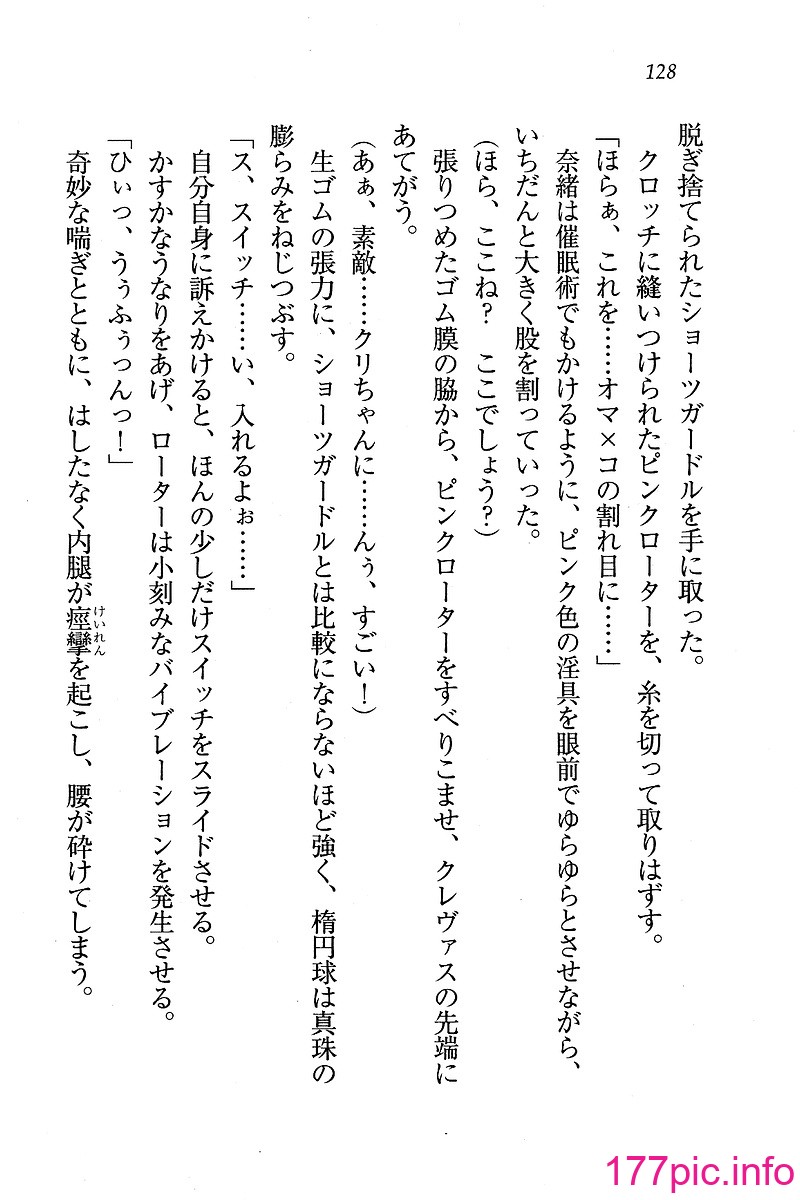 128
脱ぎ捨てられたショーツガードルを手に取った。
クロッチに縫いつけられたピンクローターを、糸を切って取りはずす。
「ほらぁ、これを……オマ×コの割れ目に……」
奈緒は催眠術でもかけるように、ピンク色の淫具を眼前でゆらゆらとさせながら、
いちだんと大きく股を割っていった。
(ほら、ここね? ここでしょう?)
張りつめたゴム膜の脇から、ピンクローターをすべりこませ、クレヴァスの先端に
あてがう。
(あぁ、素敵……クリちゃんに……んぅ、すごい!)
生ゴムの張力に、ショーツガードルとは比較にならないほど強く、楕円球は真珠の
膨らみをねじつぶす。
「ス、スイッチ……い、入れるよぉ……」
自分自身に訴えかけると、ほんの少しだけスイッチをスライドさせる。
かすかなうなりをあげ、ローターは小刻みなバイブレーションを発生させる。
「ひぃっ、うぅふぅっんっ!」
奇妙な喘ぎとともに、はしたなく内腿が痙攣けいれんを起こし、腰が砕けてしまう。
177pic.info